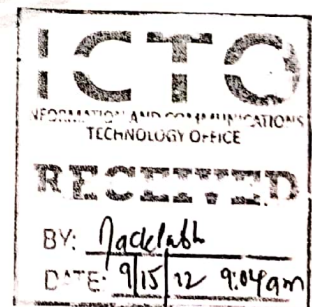 ICTO
INFORMATION AND COMMUNICATIONS
TECHNOLOGY OFFICE
RECEIVED
BY:
DATE: 9/15/22 9:04am